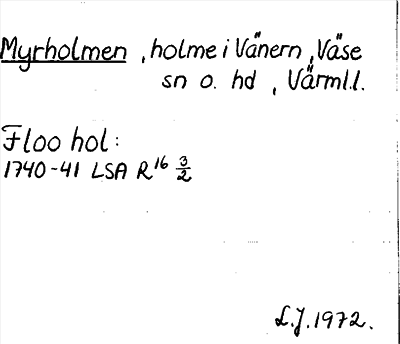 Myrholmen , holme i Vänern , Väse
sn o. hd , Värml.l.
Floo hol :
1740-41 LSA R16 3/2
L.J. 1972.